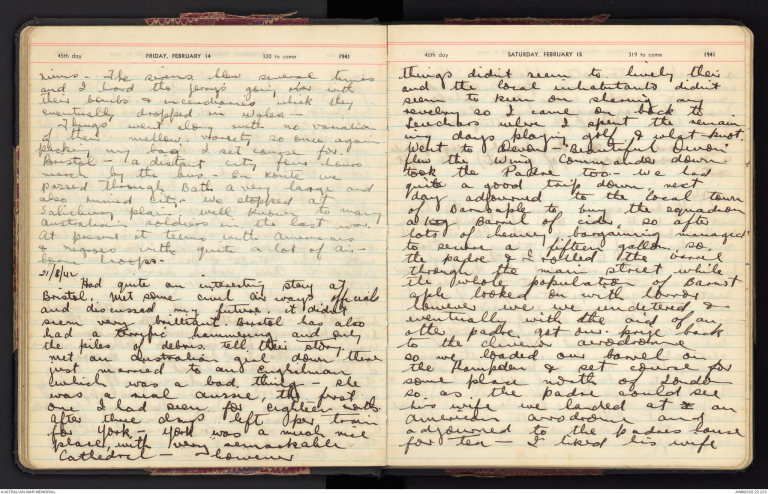 45th day FRIDAY, FEBRUARY 14 320 to come 1941
ruins - The sirens blew several times
and I heard the jerrys goin, over with
their bombs & incendiaries which they
eventually dropped in Wales. -
Things went along with no variation
of their mellow variety so once again
packing my bag I set course for
Bristol - a distant city four hours
march by the bus. - En route we
passed through Bath a very large and
also ruined city. we stopped at
Salisbury plain, well known to many
Australian soldiers in the last war.
At present it teems with Americans
& negroes with quite a lot of air-
born troops.
21/8/42
Had quite an interesting stay at
Bristol. Met some civil airways officials
and discussed my future. it didn't
seem very brilliant. Bristol has also
had a terrific hammering and only
the piles of debris tell their story,
met an Australian girl down there
just married to an Englishman
which was a bad thing - she
was a real aussie, the first
one I had seen for eighteen months.
After three days left per train
for York - York was a much nice
place, with very remarkable
Cathedral - however
46th day SATURDAY, FEBRUARY 15 319 to come 1941
things didn't seem to lively their
and the local inhabitants didn't
seem to keen on sharing our
revelry so I came on back to
Leuchars where I spent the remain
ing days playing golf & what-knot.
Went to Devon - Beautiful Devon
flew the Wing Commander down
took the Padre too - we had
quite a good trip down next
day adjourned to the local town
of Barnstaple to buy the squadron
a keg Barrel of cider so after
lots of cheery bargaining managed
to secure a fifteen gallon, so,
the padre & I rolled the barrel
through the main street while
the whole population of Barnst
aple looked on with horror
however we were undeterred &
eventually with the aid of an
other padre get our prize back
to the Chivenor aerodrome
so we loaded our barrel on
the Hampden & set course for
some place north of London
so as the padre could see
his wife we landed at an
American aerodrome and
adjourned to the padres house
for tea - I liked his wife
AUSTRALIAN WAR MEMORIAL